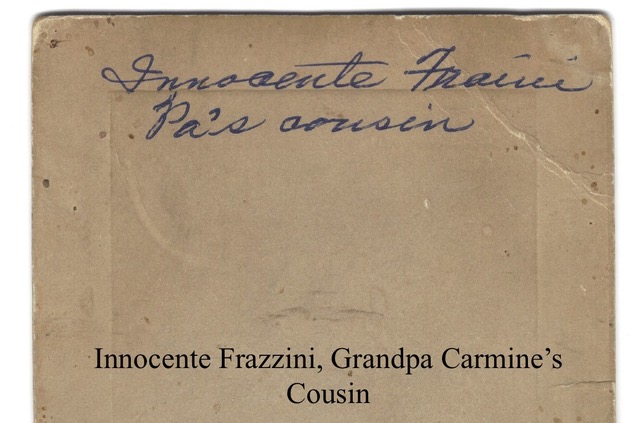 Innocente Fraini
Pa's cousin
Innocente Frazzini, Grandpa Carmine’s
Cousin